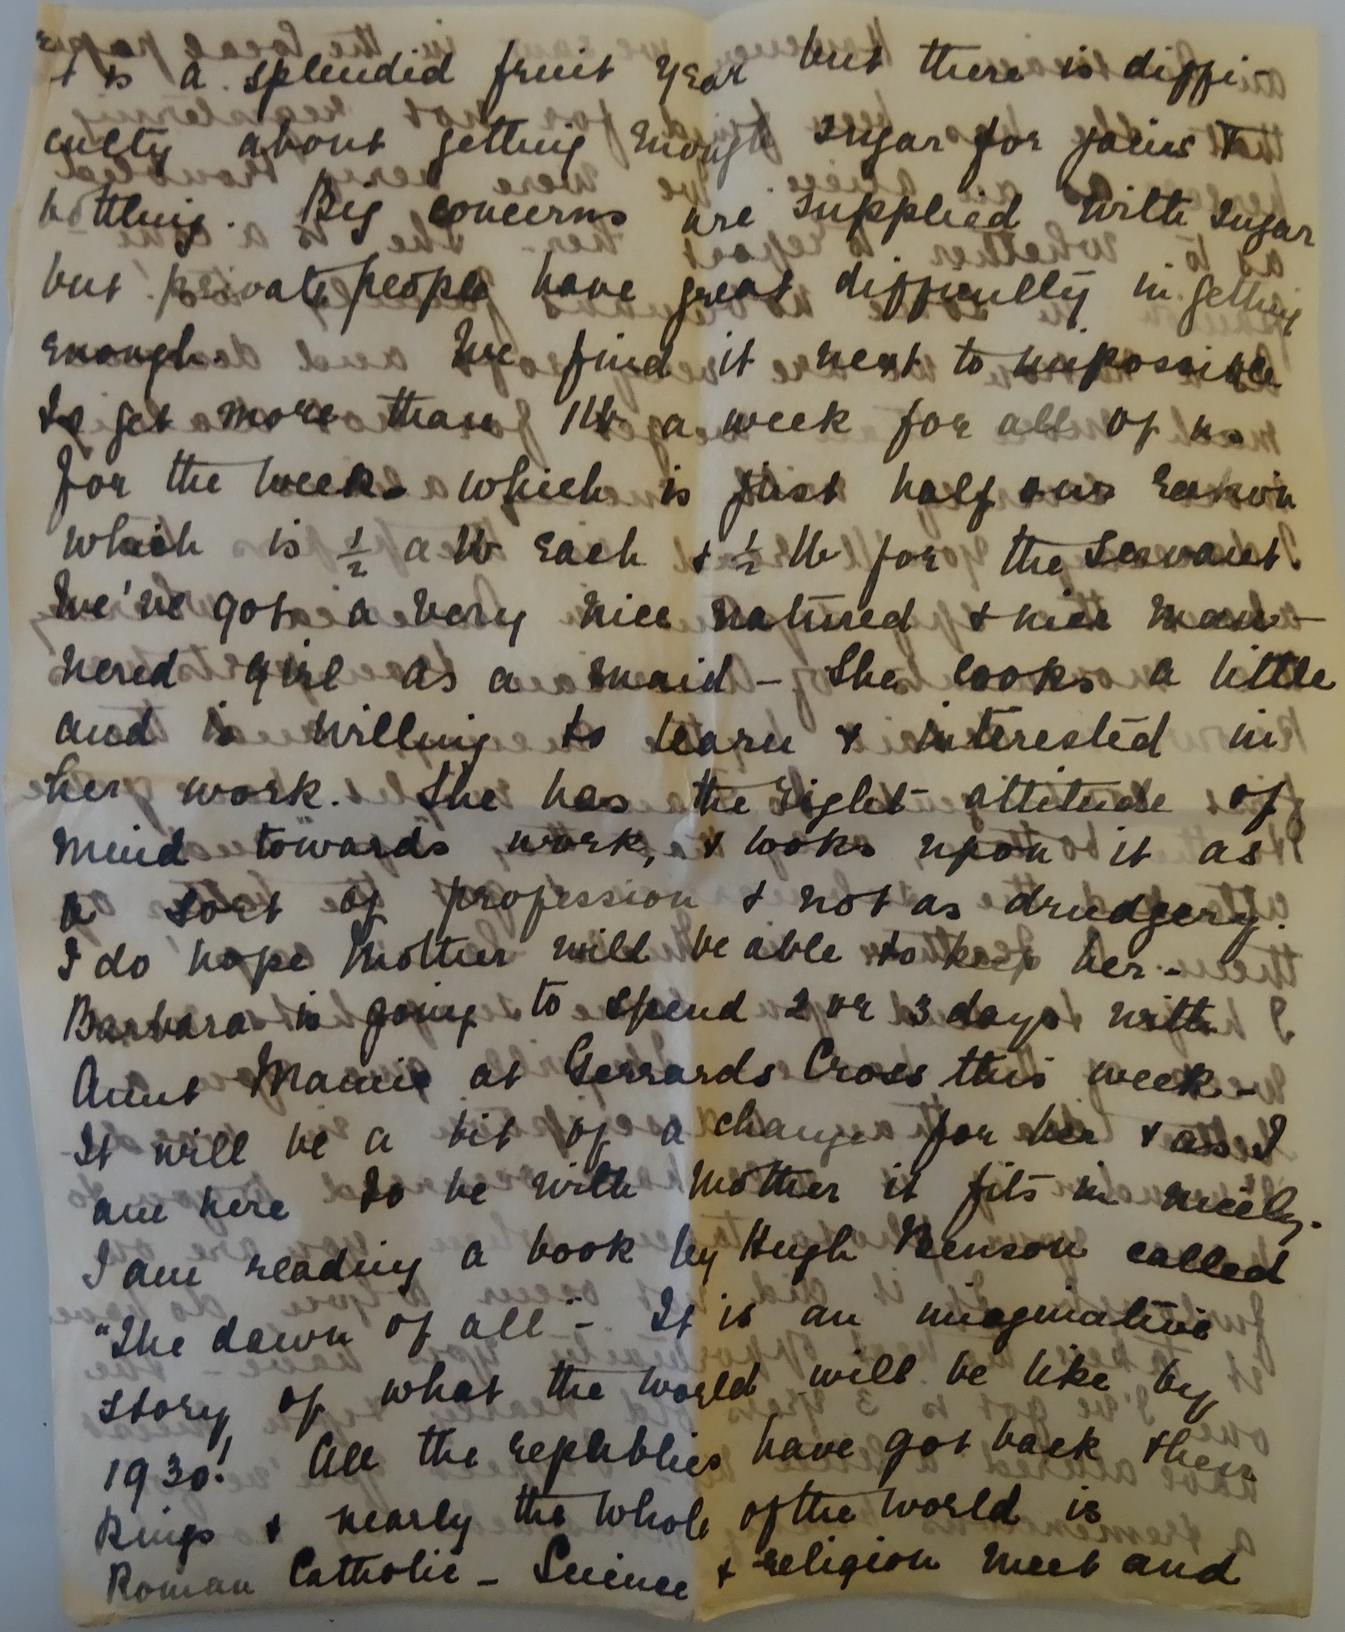 It is a splendid fruit year but there is diffi-
culty about getting enough sugar for jams &
bottling. Big concerns are supplied with sugar
but private people have great difficulty in getting
enough. We find it next to impossible
to get more than 1 lb a week for all of us
for the week - which is just half our ration
which is ½ a lb each & ½ lb for the servant.
We've got a very nice natured & nice man-
nered girl as a maid - She cooks a little
and is willing to learn & interested in
her work. She has the right attitude of
mind towards work, & looks upon it as
a sort of profession & not as drudgery.
I do hope Mother will be able to keep her -
Barbara is going to spend 2 or 3 days with
Aunt Mamie at Gerrards Cross this week -
It will be a bit of a change for her & as I
am here to be with Mother it fits in nicely.
I am reading a book by Hugh Benson called
"The dawn of all" - It is an imaginative
story of what the world will be like by
1930! All the republics have got back their
Kings & nearly the whole of the world is
Roman Catholic - Science & religion meet and